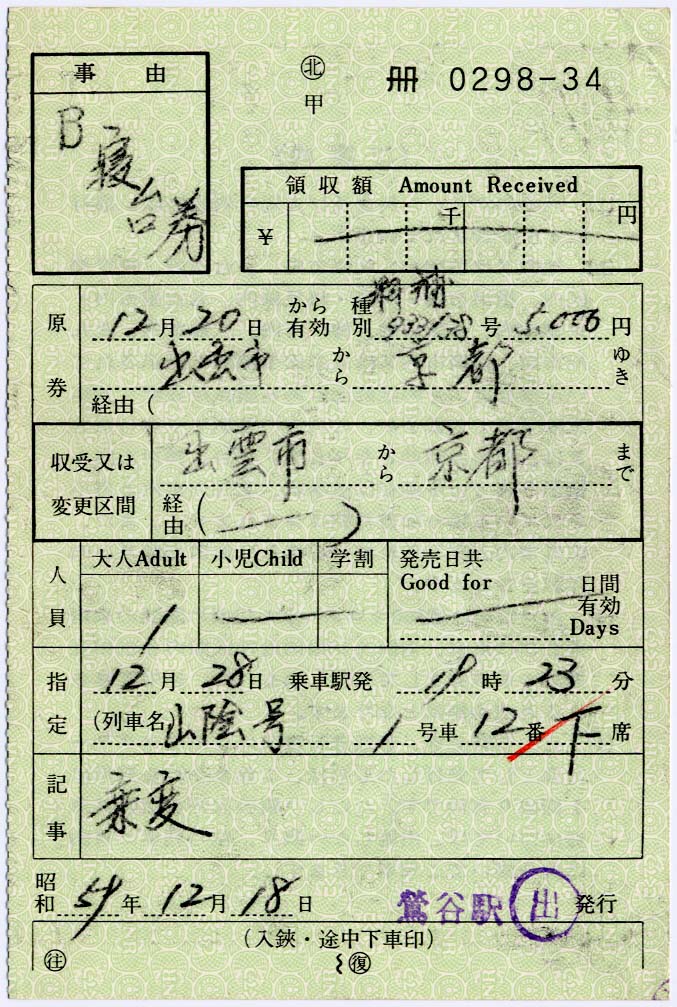 事由
㊗北
甲
冊 0298-34
B寝台券
領収額 Amount Received
¥ 千 円
原券
12月20日から有効 種別 933128号 5,000円
出雲市から京都ゆき
経由(
収受又は変更区間
出雲市から京都まで
経由( )
人員
大人Adult 小児Child 学割 発売日共
Good for 日間有効
1 Days
指定
12月28日 乗車駅発 19時23分
(列車名)山陰号 1号車12番下席
記事
乗変
昭和59年12月18日 鶯谷駅 出 発行
(入鋏・途中下車印)
往 復